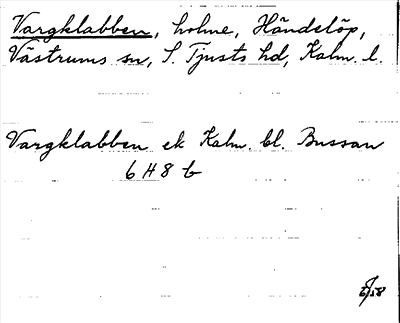 Vargklabben, holme, Händelöp,
Västrums sn, S. Tjusts hd, Kalm. l.
Vargklabben ek Kalm. bl. Bussan
6 H 8 b